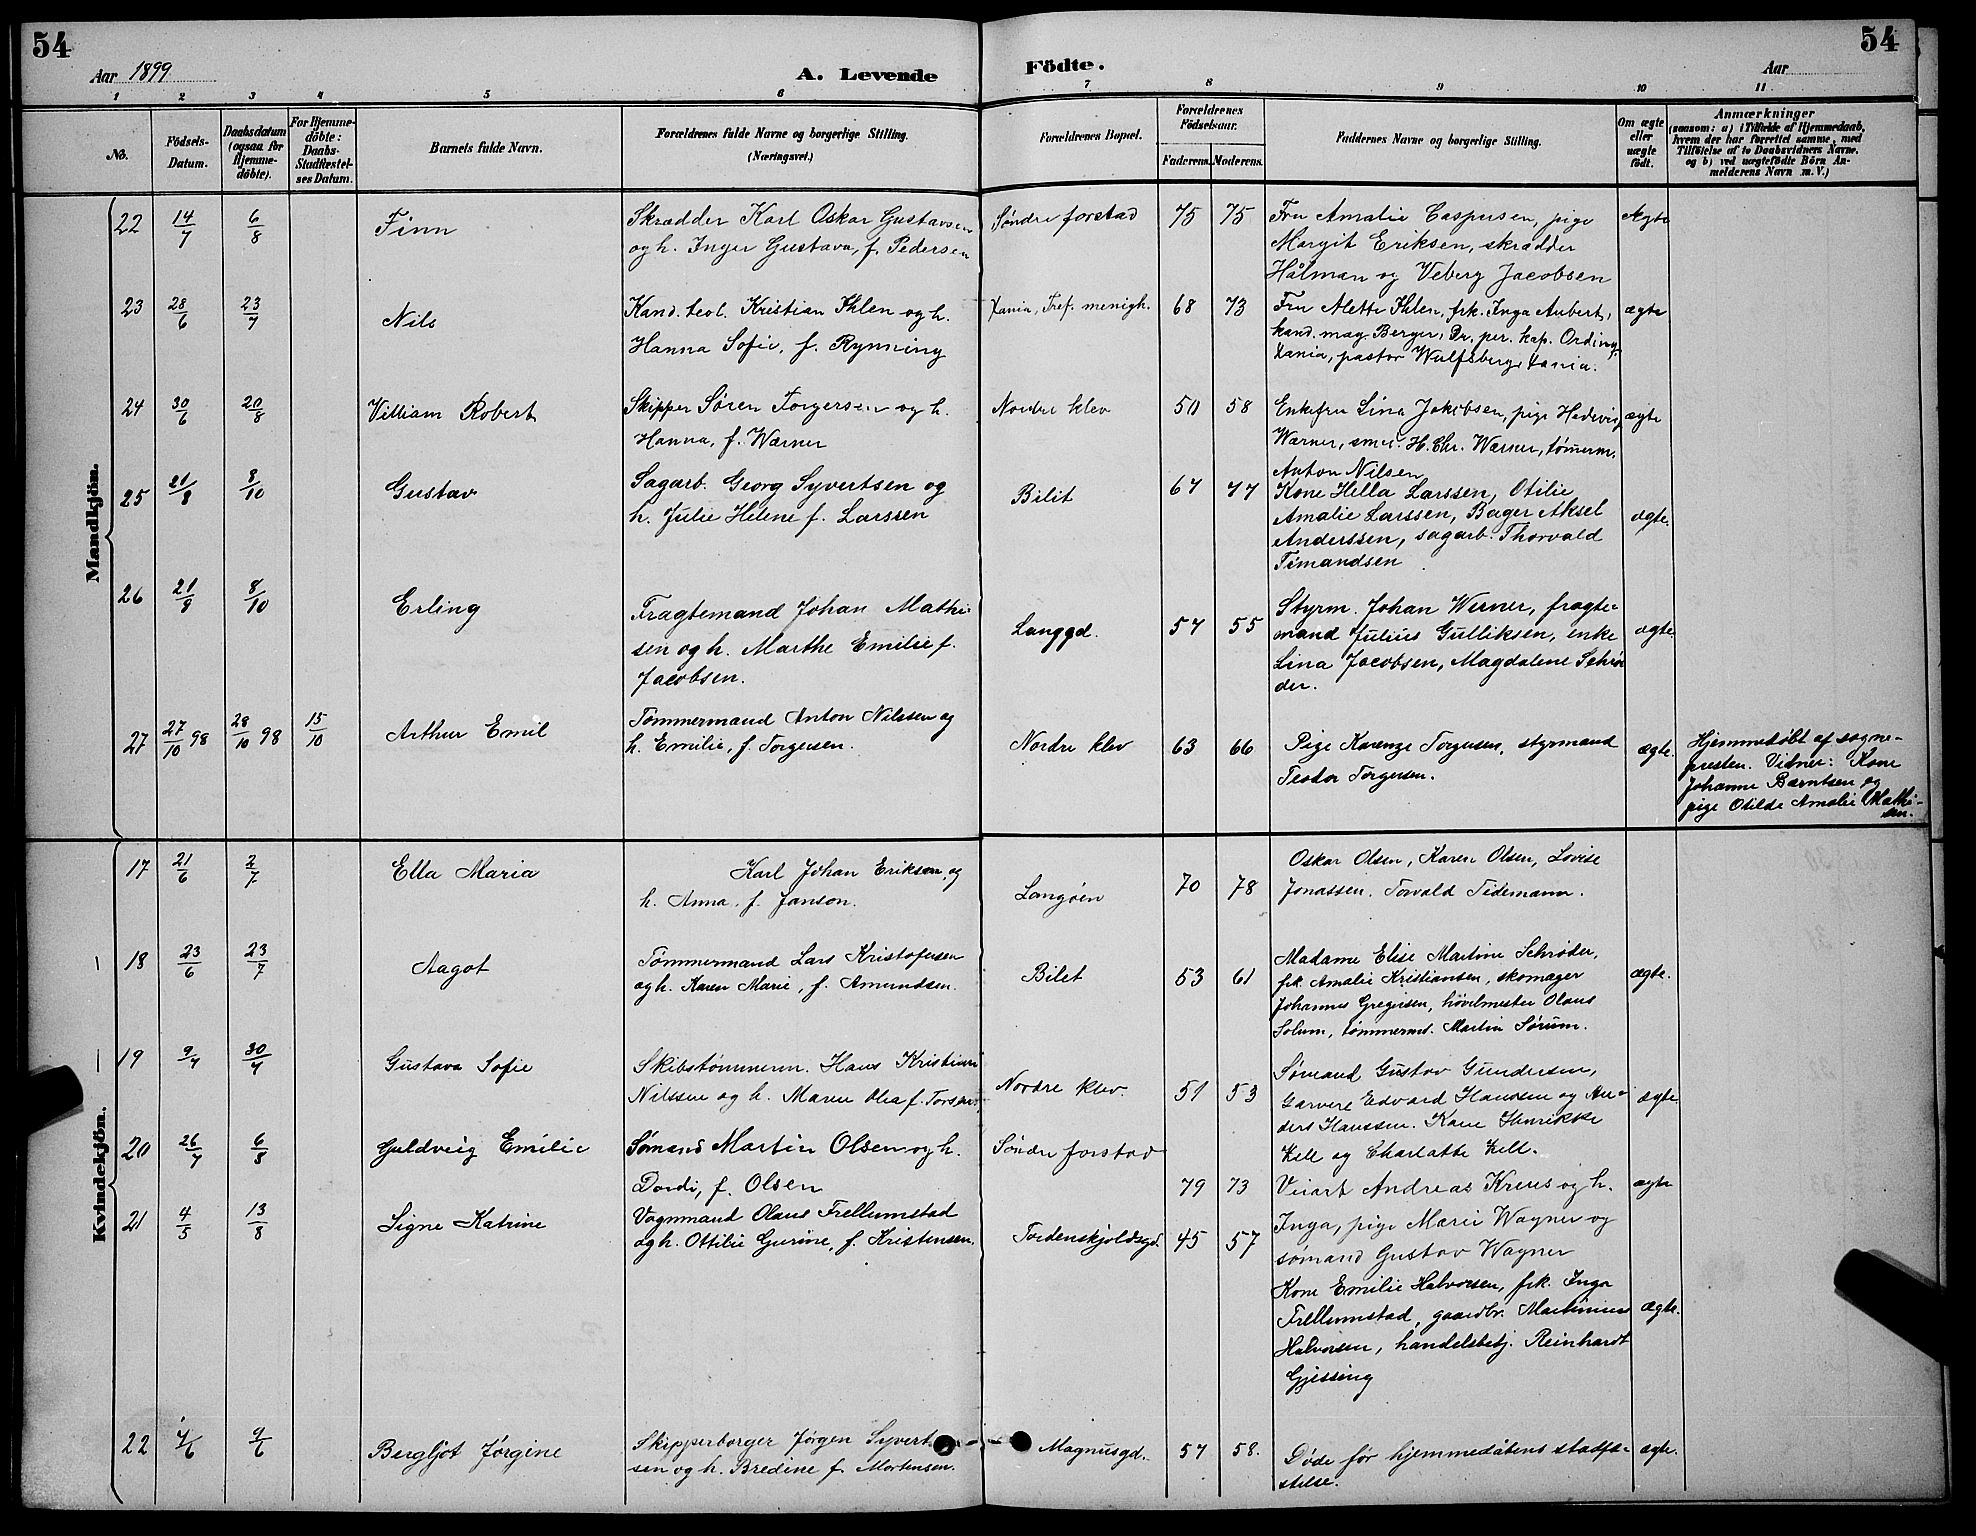 54
54
Aar 1899
A. Levende
Födte.
Aar
1 2 3 4 5 6 7 8 9 10 11
No.
Födsels-
Datum.
Daabsdatum
(ogsaa for
Hjemme-
döbte).
For Hjemme-
döbte:
Daabs-
Stadfæstel-
ses Datum.
Barnets fulde Navn.
Forældrenes fulde Navne og borgerlige Stilling.
(Næringsvei.)
Forældrenes Bopæl.
Forældrenes
Födselsaar.
Faderens. Moderens.
Faddernes Navne og borgerlige Stilling.
Om ægte
eller
uægte
födt.
Anmærkninger
(saasom: a) i Tilfælde af Hjemmedaab,
hvem der har forrettet samme, med
Tilföielse af to Daabsvidners Navne,
og b) ved uægtefödte Börn An-
melderens Navn m. V.)
Mandkjön.
22 14/7 6/8 Finn
Skrædder Karl Oskar Gustavsen
og h. Inger Gustava, f. Pedersen
Søndre forstad 75 75
Fru Amalie Caspersen, pige
Margit Eriksen, skrædder
Hålman og Veberg Jacobsen
Ægte
23 28/6 23/7 Nils
Kand. teol. Kristian Ihlen og h.
Hanna Sofie, f. Rynning
Xania, Tref. menigh. 68 73
Fru Alette Ihlen, frk. Inga Aubert,
kand. mag Berger, Dr. per. kap. Ording,
Xania, pastor Wulfsberg, Xania.
ægte
24 30/6 20/8 Villiam Robert
Skipper Søren Torgersen og h.
Hanna, f. Wærner
Nordre klev 50 58
Enkefru Lina Jakobsen, pige Hedevig
Wærner, smed H. Chr. Wærner, tømerm.
Anton Nilsen
ægte
25 21/8 8/10 Gustav
Sagarb. Georg Syvertsen og
h. Julie Helene f. Larssen
Bilit 67 77
Kone Hella Larssen, Otilie
Amalie Larssen, Bager Aksel
Anderssen, sagarb. Thorvald
Timandsen
ægte.
26 21/9 8/10 Erling
Fragtemand Johan Mathi-
sen og h. Marthe Emilie f.
Jacobsen.
Langgd. 57 55
Styrm. Johan Werner, fragte-
mand Julius Gulliksen, enke
Lina Jacobsen, Magdalene Schrø
der.
ægte.
27 27/10 98 28/10 98 15/10 Arthur Emil
Tømmermand Anton Nilssen og
h. Emilie, f. Torgersen.
Nordre klev 63 66
Pige Karenze Torgersen, styrmand
Teodor Torgersen.
ægte.
Hjemmedøbt af sogne-
presten. Vidner: Kone
Johanne Bærntsen og
pige Otilde Amalie Mathi-
sen.
Kvindekjön.
17 21/6 2/7 Ella Maria
Karl Johan Eriksen og
h. Anna, f. Janson.
Langøen 70 78
Oskar Olsen, Karen Olsen, Lovise
Jonassen. Torvald Tidemann.
18 23/6 23/7 Aagot
Tømmermand Lars Kristofersen
og h. Karen Marie, f. Amundsen.
Bilet 53 61
Madame Elise Martine Schrøder,
frk. Amalie Kristiansen, skomager
Johannes Gregersen, høvelmester Olaus
Solum, tømmermd. Martin Sørum.
ægte.
19 9/7 30/7 Gustava Sofie
Skibstømmerm. Hans Kristian
Nilssen og h. Maren Olea f. Torsen
Nordre klev. 51 53
Sømand Gustav Gundersen,
Garvere Edvard Hanssen og An-
ders Hanssen. Kone Henrikke
Kell og Charlotte Kell.
ægte
20 26/7 6/8 Guldveig Emilie
Sømand Martin Olsen og h.
Dordi, f. Olsen
Søndre forstad
79 73
Andreas Kreus og h.
Inga, pige Marie Wagner og
sømand Gustav Wagner
ægte
21 4/5 13/8 Signe Katrine
Vognmand Olaus Frellumstad
og h. Ottilie Gurine, f. Kristensen.
Tordenskjoldsgd. 45 57
Kone Emilie Halvorsen, frk. Inga
Frellumstad, gaardbr. Martinius
Halvorsen, handelsbetj. Reinhardt
Gjessing
ægte.
22 4/6 9/6 Bergljot Jørgine
Skipperborger Jørgen Syvert
sen og h. Bredine f. Mortensen.
Magnusgd. 57 58.
Døde før hjemmedåbens stadfæ-
stelse.
ægte.